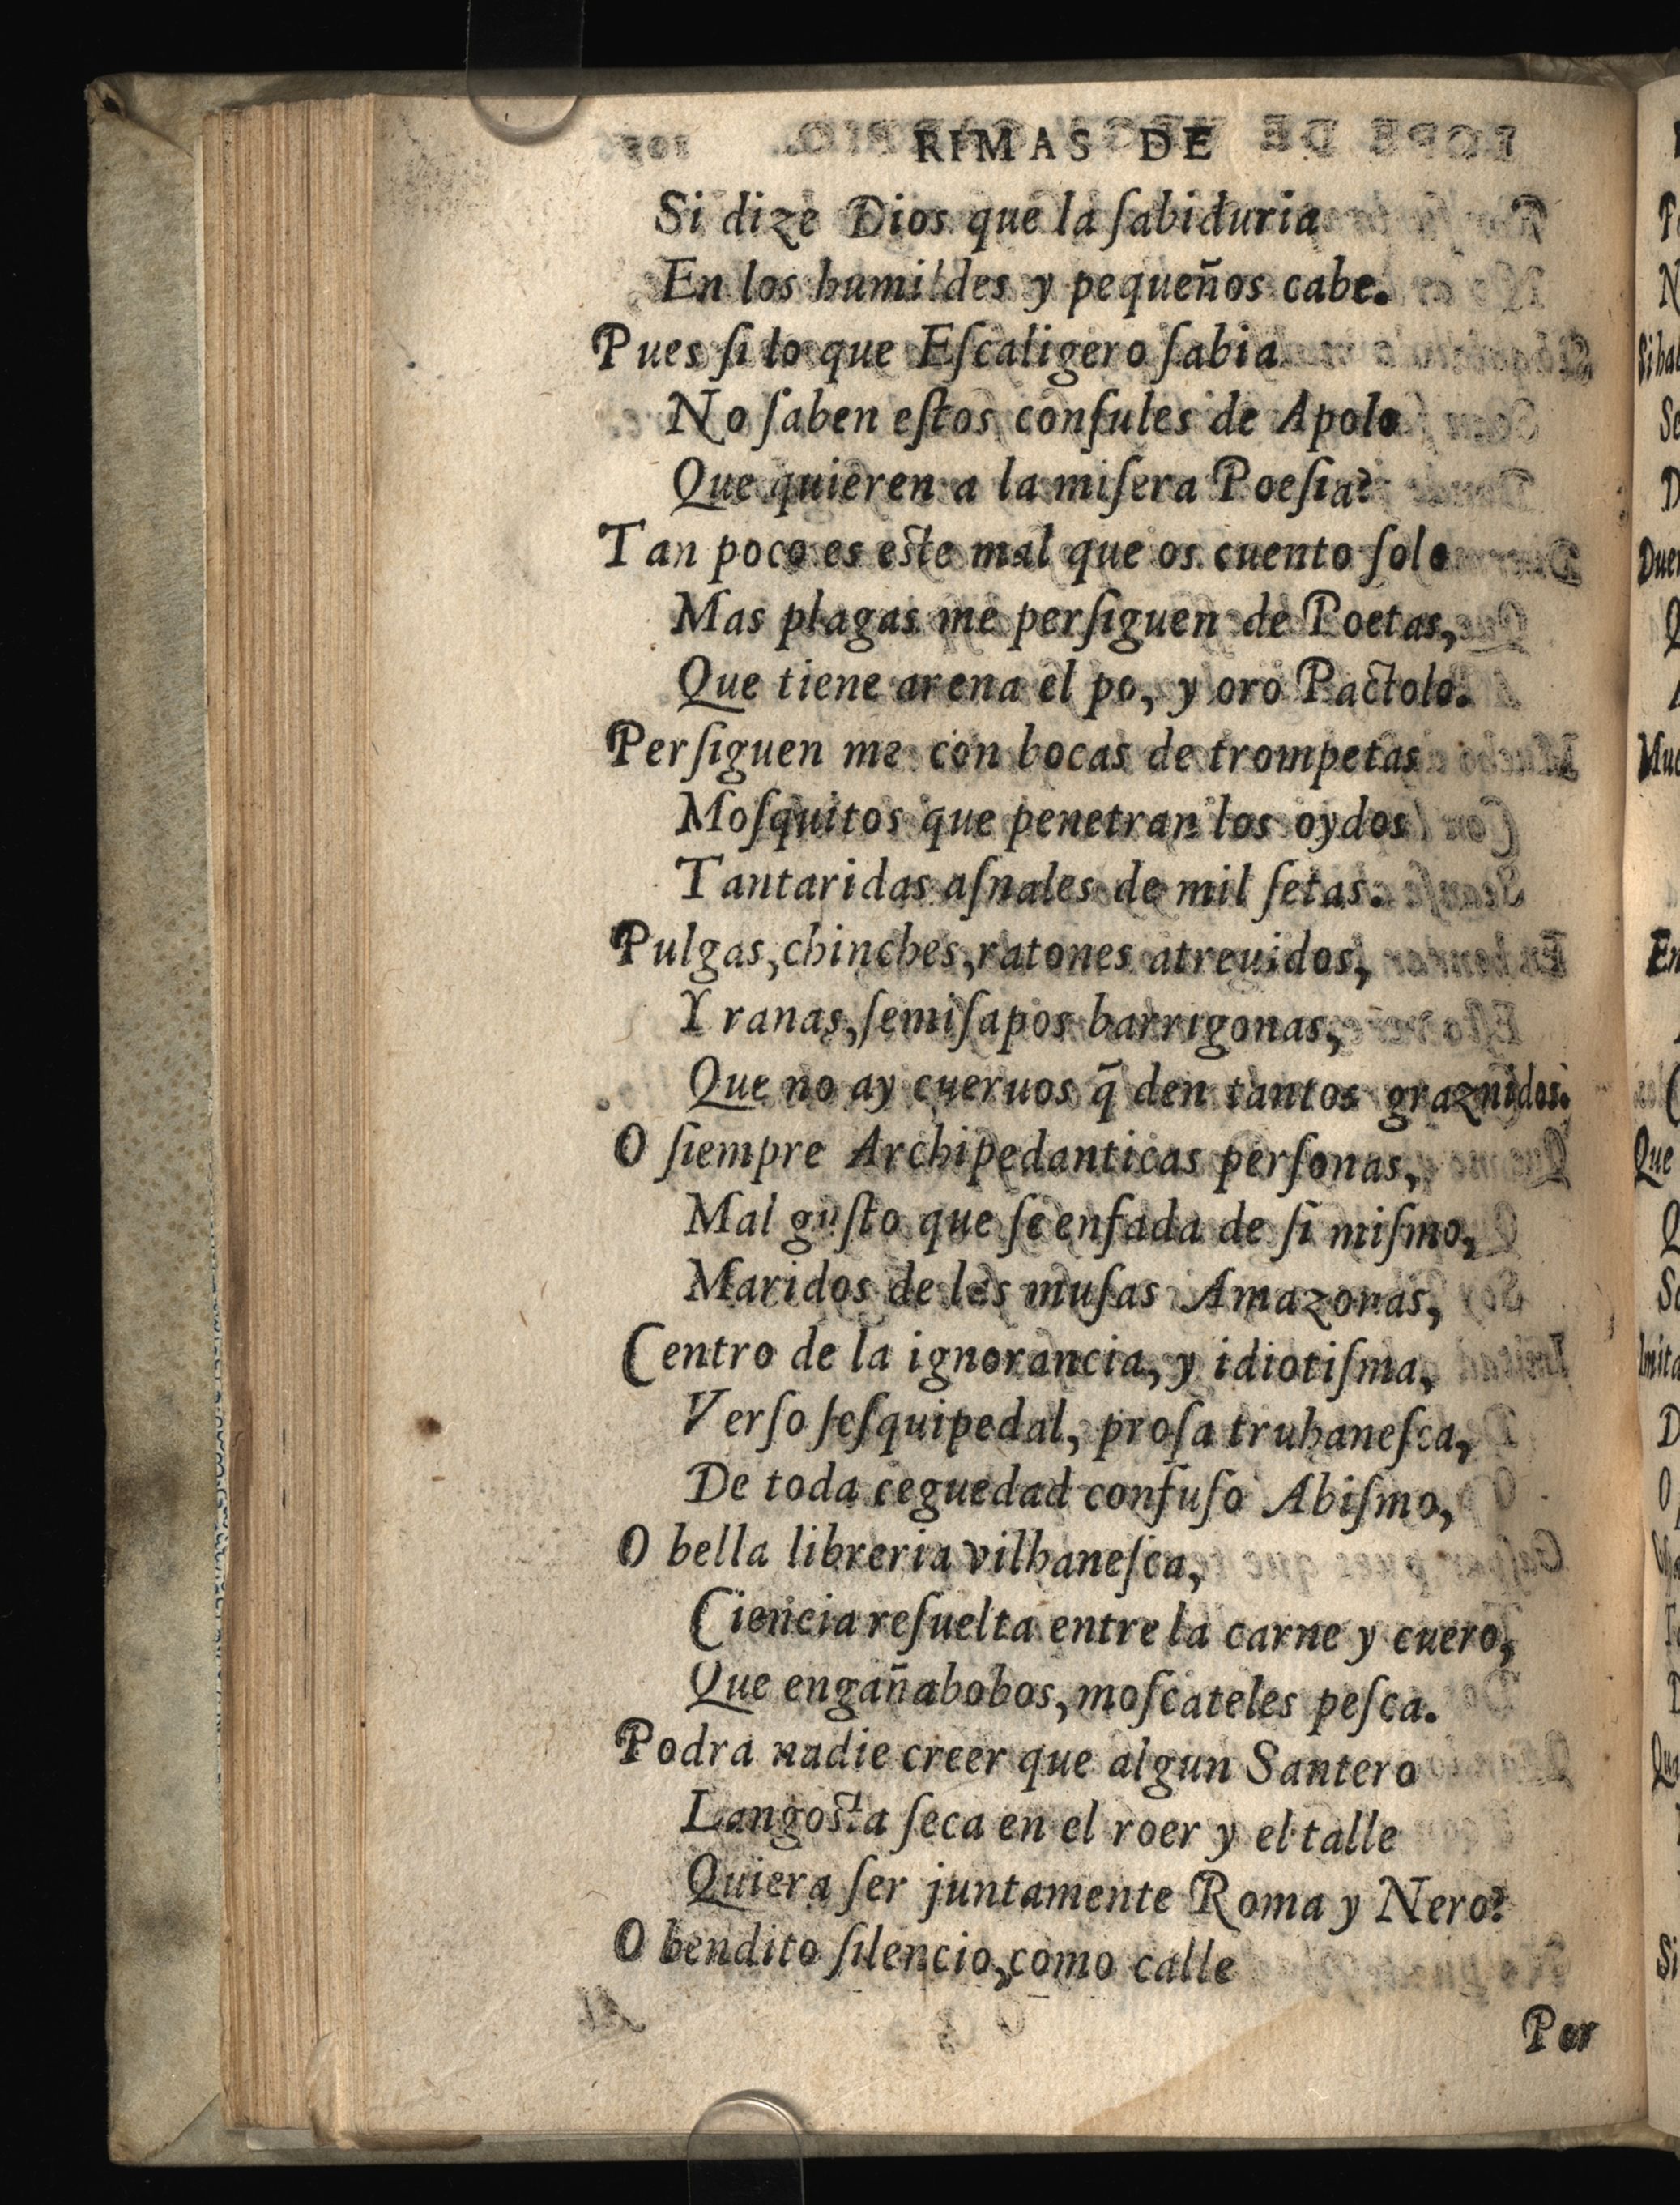 RIMAS DE
Si dize Dios que la ſabiduria
En los humildes y pequeños cabe.
Pues ſi lo que Eſcaligero ſabia
No ſaben eſtos conſules de Apolo
Que quieren a la miſera Poeſia?
Tan poco es eſte mal que os cuento ſolo
Mas plagas me perſiguen de Poetas,
Que tiene arena el po, y oro Pactolo.
Perſiguen me con bocas de trompetas
Moſquitos que penetran los oydos
Tantaridas aſnales de mil ſetas.
Pulgas, chinches, ratones atreuidos,
Y ranas, ſemiſapos barrigonas,
Que no ay cueruos q̃ den tantos graznidos.
O ſiempre Archipedanticas perſonas,
Mal guſto que ſe enfada de ſi miſmo,
Maridos de las muſas Amazonas,
Centro de la ignorancia, y idiotiſma,
Verſo ſeſquipedal, proſa truhaneſca,
De toda ceguedad confuſo Abiſmo,
O bella libreria vilhaneſca,
Ciencia reſuelta entre la carne y cuero,
Que engañabobos, moſcateles peſca.
Podra nadie creer que algun Santero
Langoſta ſeca en el roer y el talle
Quiera ſer juntamente Roma y Nero?
O bendito ſilencio, como calle
Por